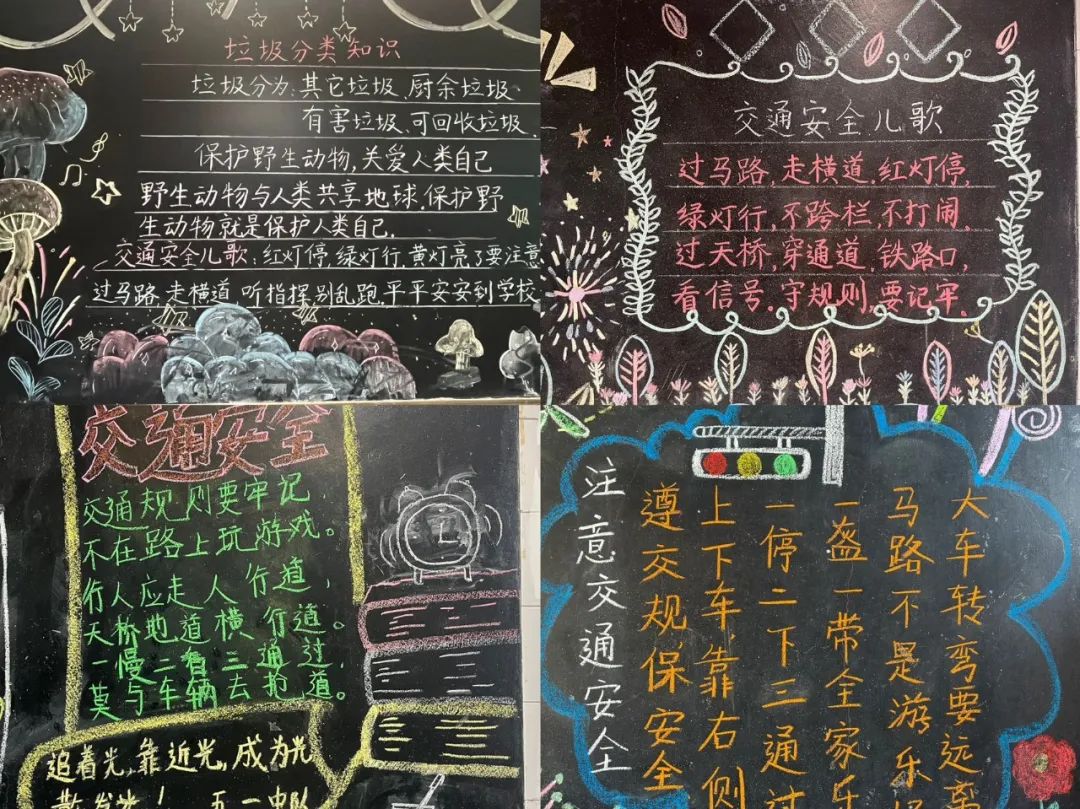 垃圾分类知识
垃圾分为:其它垃圾、厨余垃圾、
有害垃圾、可回收垃圾.
保护野生动物,关爱人类自己
野生动物与人类共享地球.保护野
生动物就是保护人类自己.
交通安全儿歌:红灯停,绿灯行,黄灯亮了要注意
过马路,走横道,听指挥,别乱跑,平平安安到学校
交通安全儿歌
过马路,走横道,红灯停,
绿灯行,不跨栏,不打闹,
过天桥,穿通道,铁路口,
看信号,守规则,要记牢.
交通安全
交通规则要牢记,
不在路上玩游戏。
行人应走人行道,
天桥地道横行道。
一慢二看三通过,
莫与车辆去抢道。
追着光,靠近光,成为光
散发光! 五一中队
注意交通安全
遵交规,保安全
上下车,靠右侧
一停二下三通过
一盔一带全家乐
马路不是游乐
大车转弯要远离